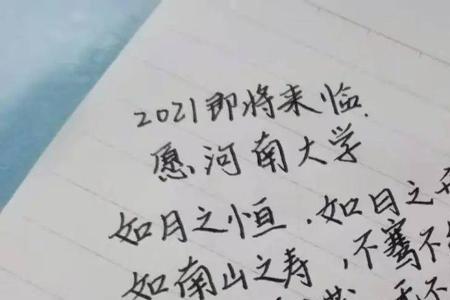 2021即将来临.
愿河南大学
如月之恒，如日之
如南山之寿，不骞不